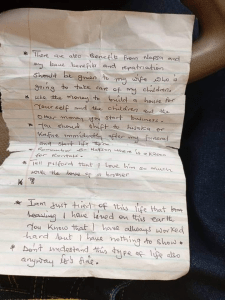 * There are also Benefits from Napsa and
my leave benefits and repatriation
should be given to my wife who is
going to take care of my children
* Use the money to build a house for
yourself and the children and the
other money you start business
* You should shift to Lusaka or
Kabwe immediately after my funeral
and start life there
* Remember
for Rentals
* Tell that I love him so much
with the love of a brother
* I am just tired of this life that from
I have lived on this earth
You know that I have always worked
hard but I have nothing to show
* Don't understand this type of life also
anyway it's fine.